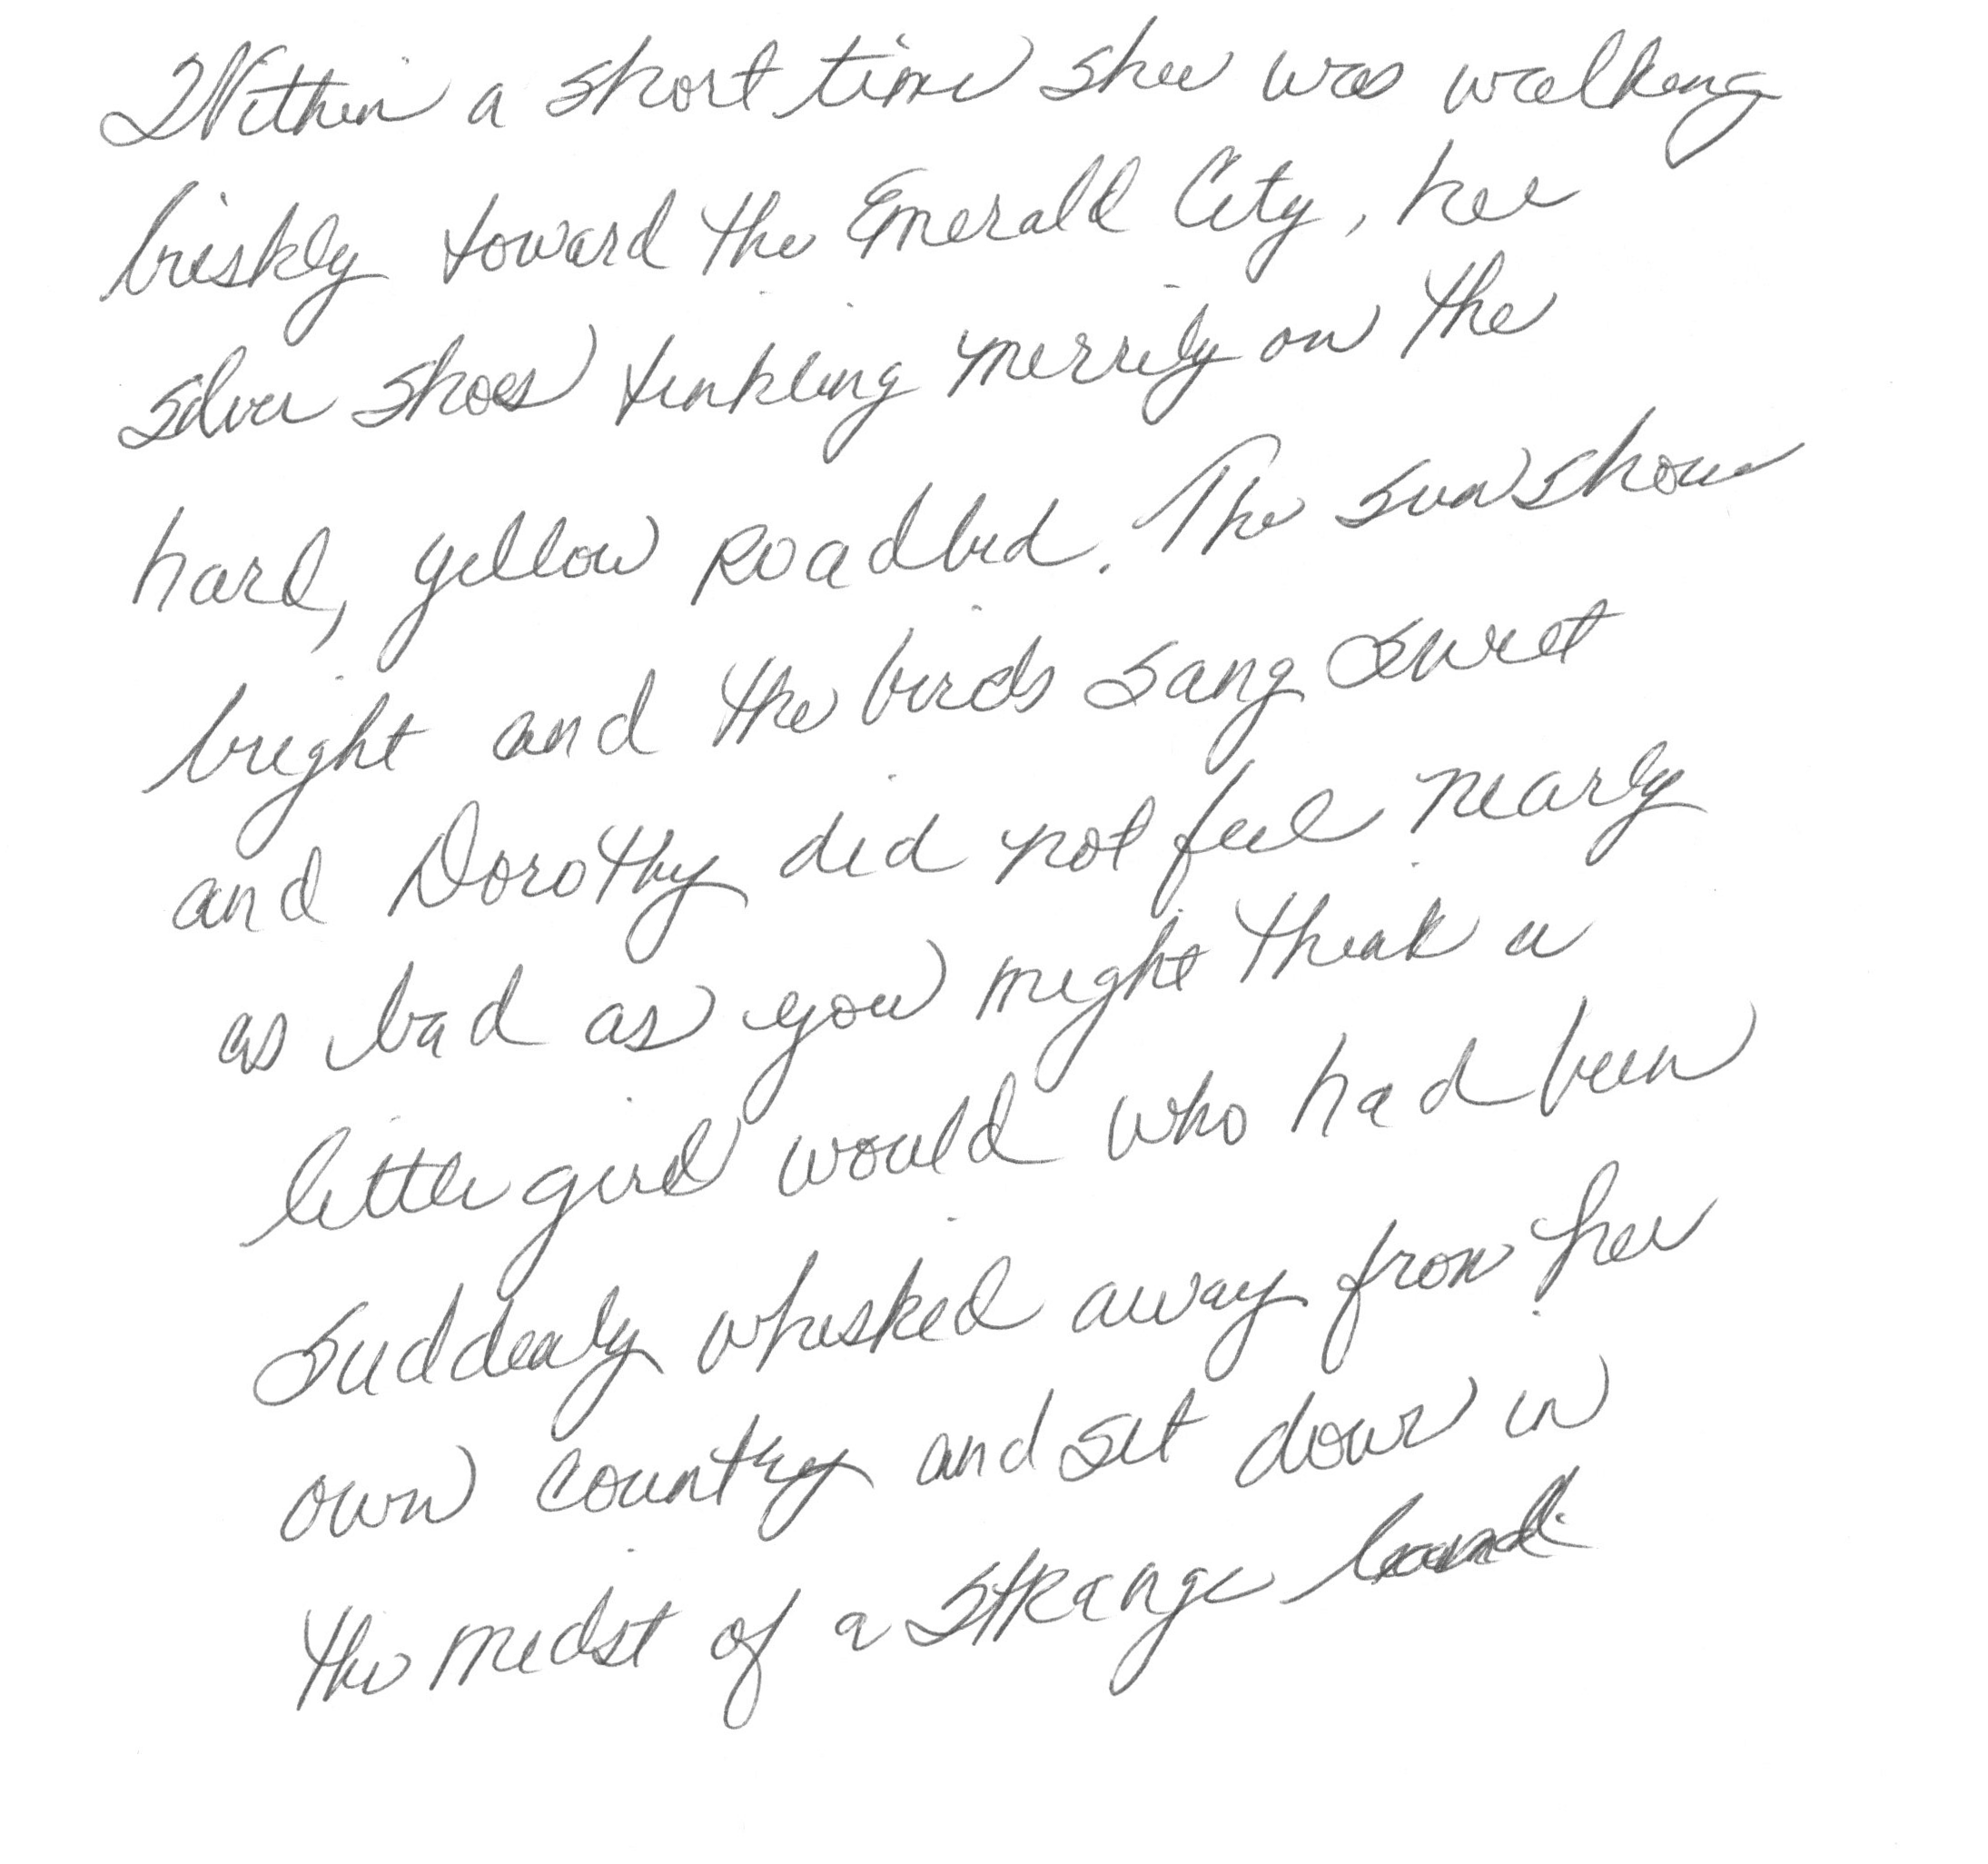 Within a short time she was walking
briskly toward the Emerald City, her
silver shoes tinkling merrily on the
hard, yellow roadbed. The sun shone
bright and the birds sang sweet
and Dorothy did not feel nearly
as bad as you might think a
little girl would who had been
suddenly whisked away from her
own country and set down in
the midst of a strange land.